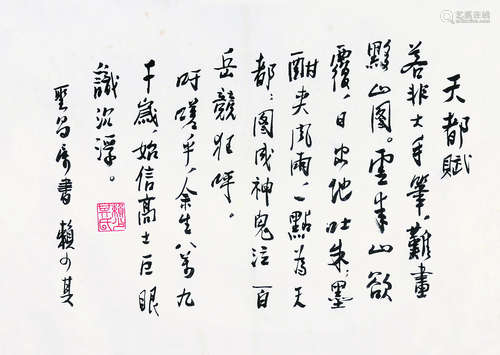 天都賦
若非大手筆，難畫
黟山图。雲来山欲
覆，日出地吐朱；墨
酣夹風雨，一點為天
都；图成神鬼泣，百
岳競狂呼。
吁嗟乎！余生八萬九
千歲，始信高士巨眼
識沉浮。
聖昌属書 賴少其